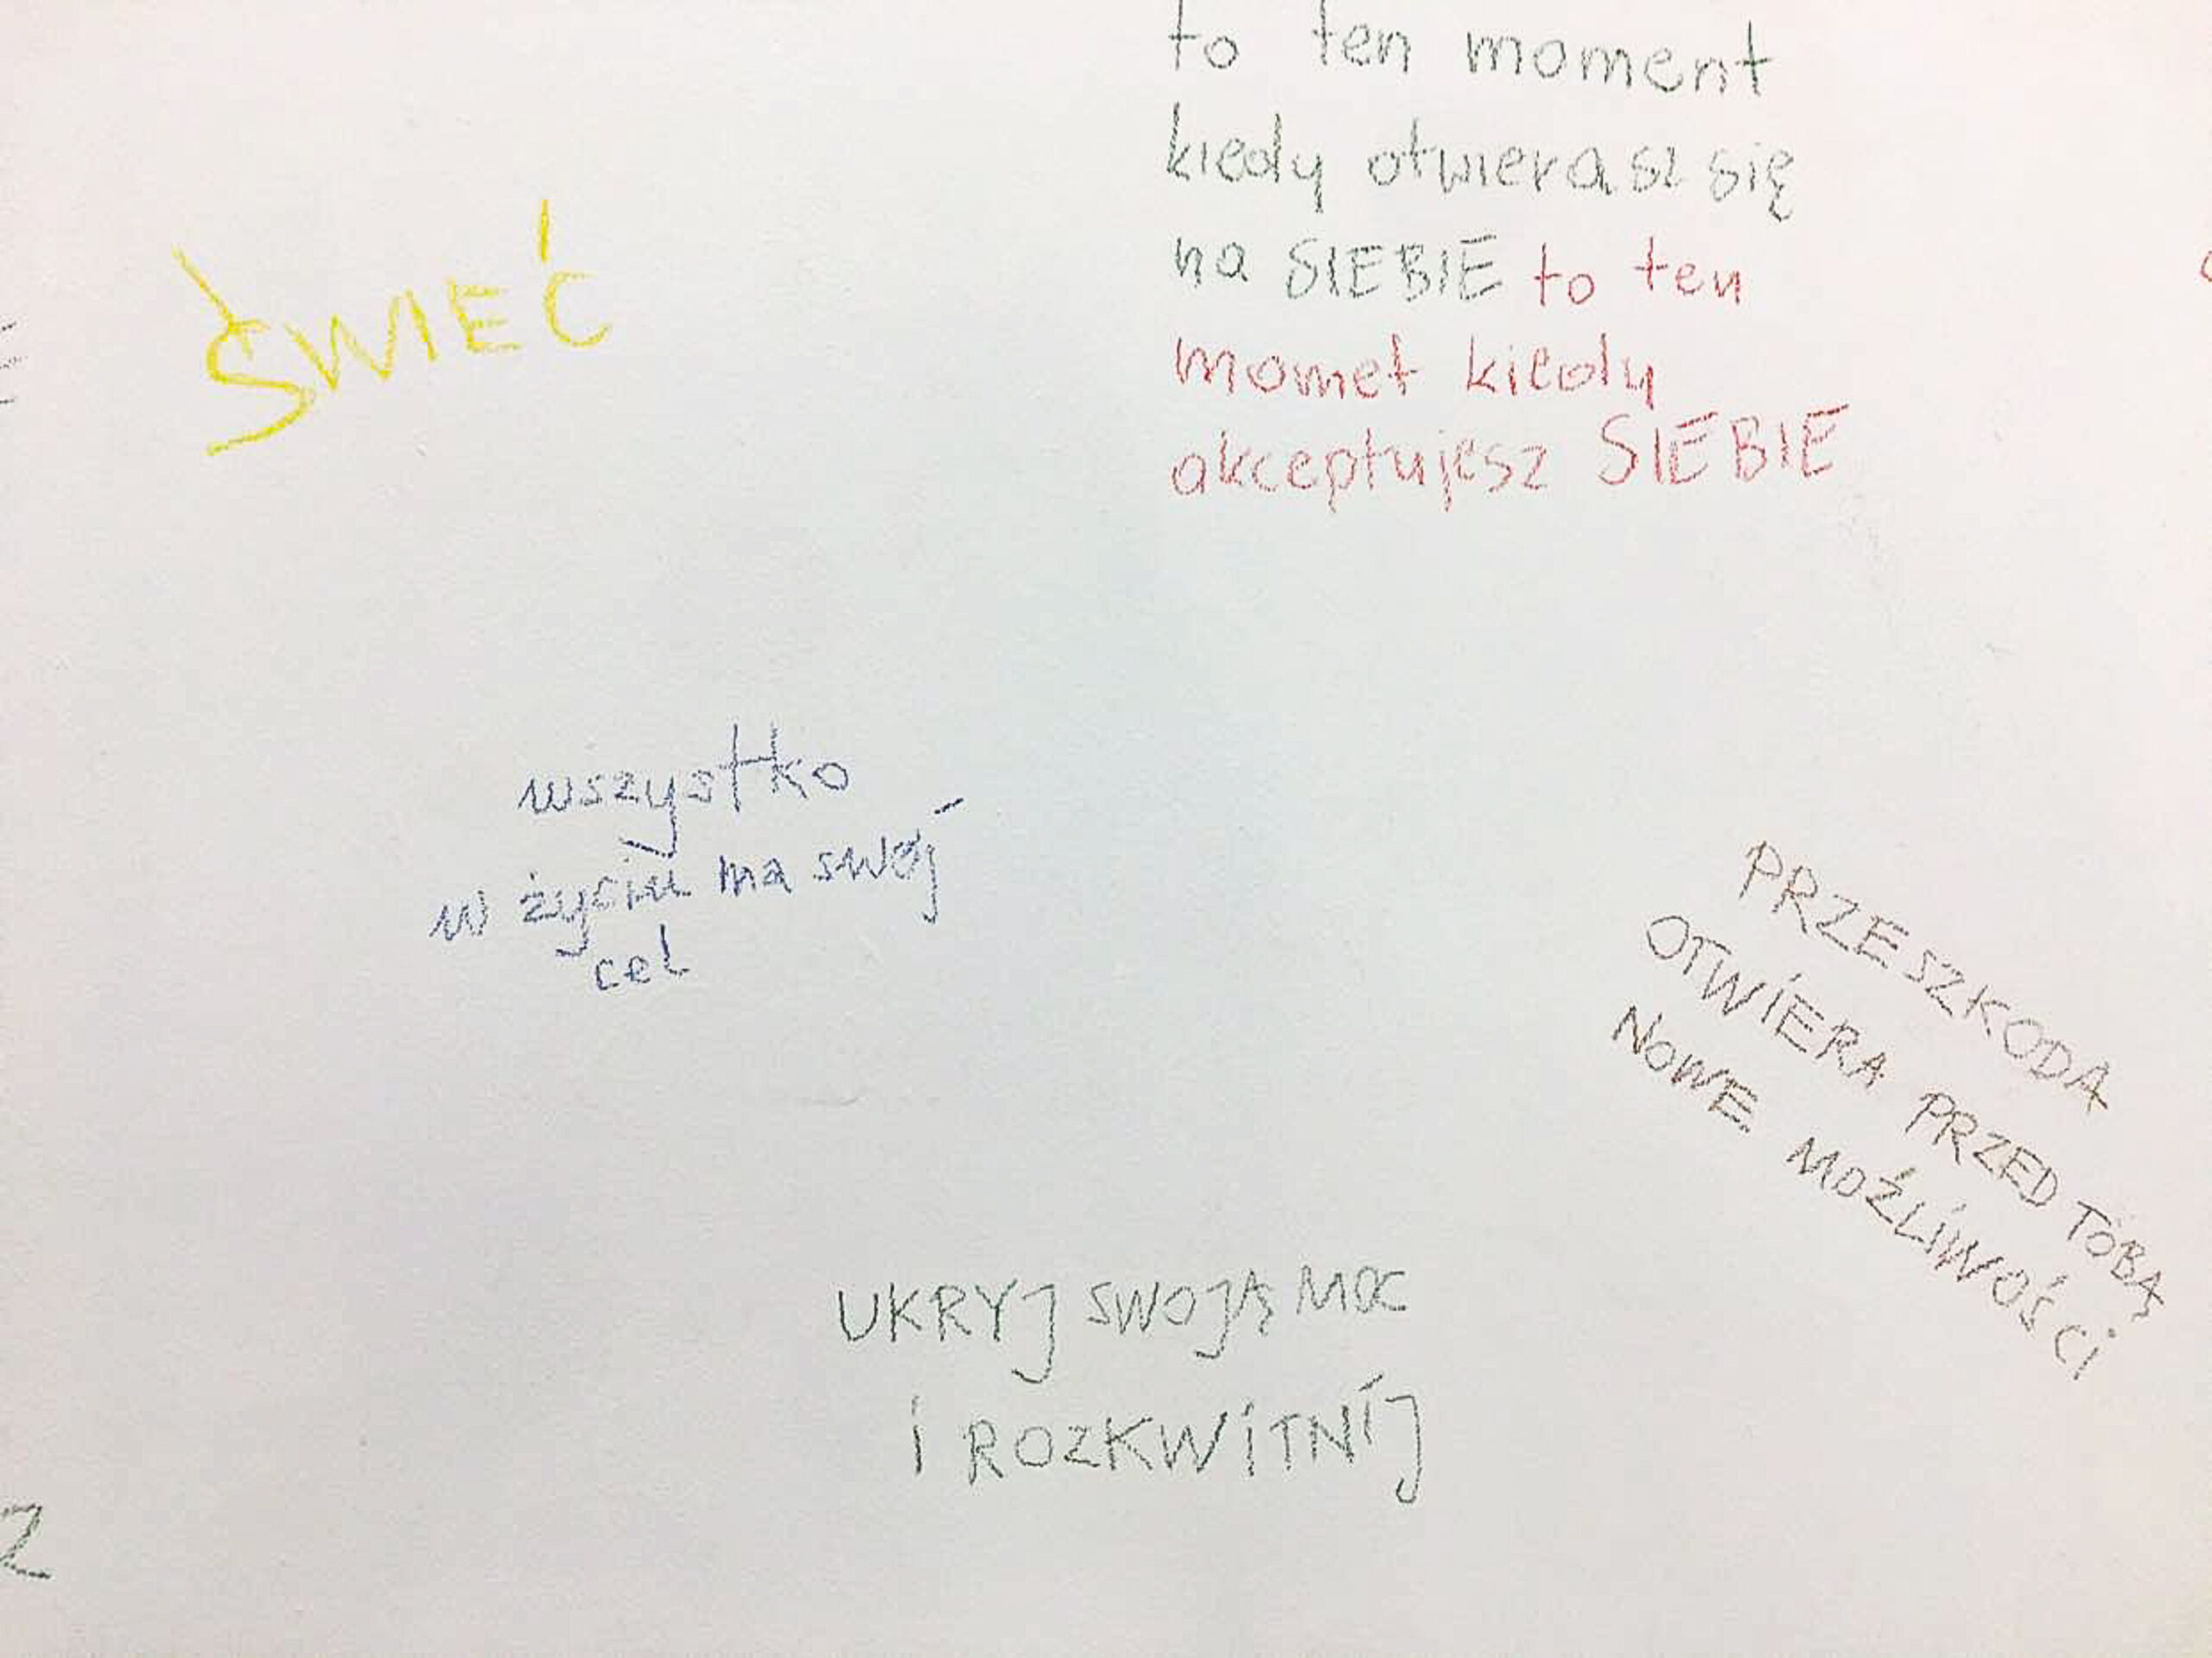 to ten moment
kiedy otwierasz się
na SIEBIE to ten
momet kiedy
akceptujesz SIEBIE
ŚWIEĆ
wszystko
w życiu ma swój
cel
PRZESZKODA
OTWIERA PRZED TOBĄ
NOWE MOŻLIWOŚCI
UKRYJ SWOJĄ MOC
i ROZKWITNIJ